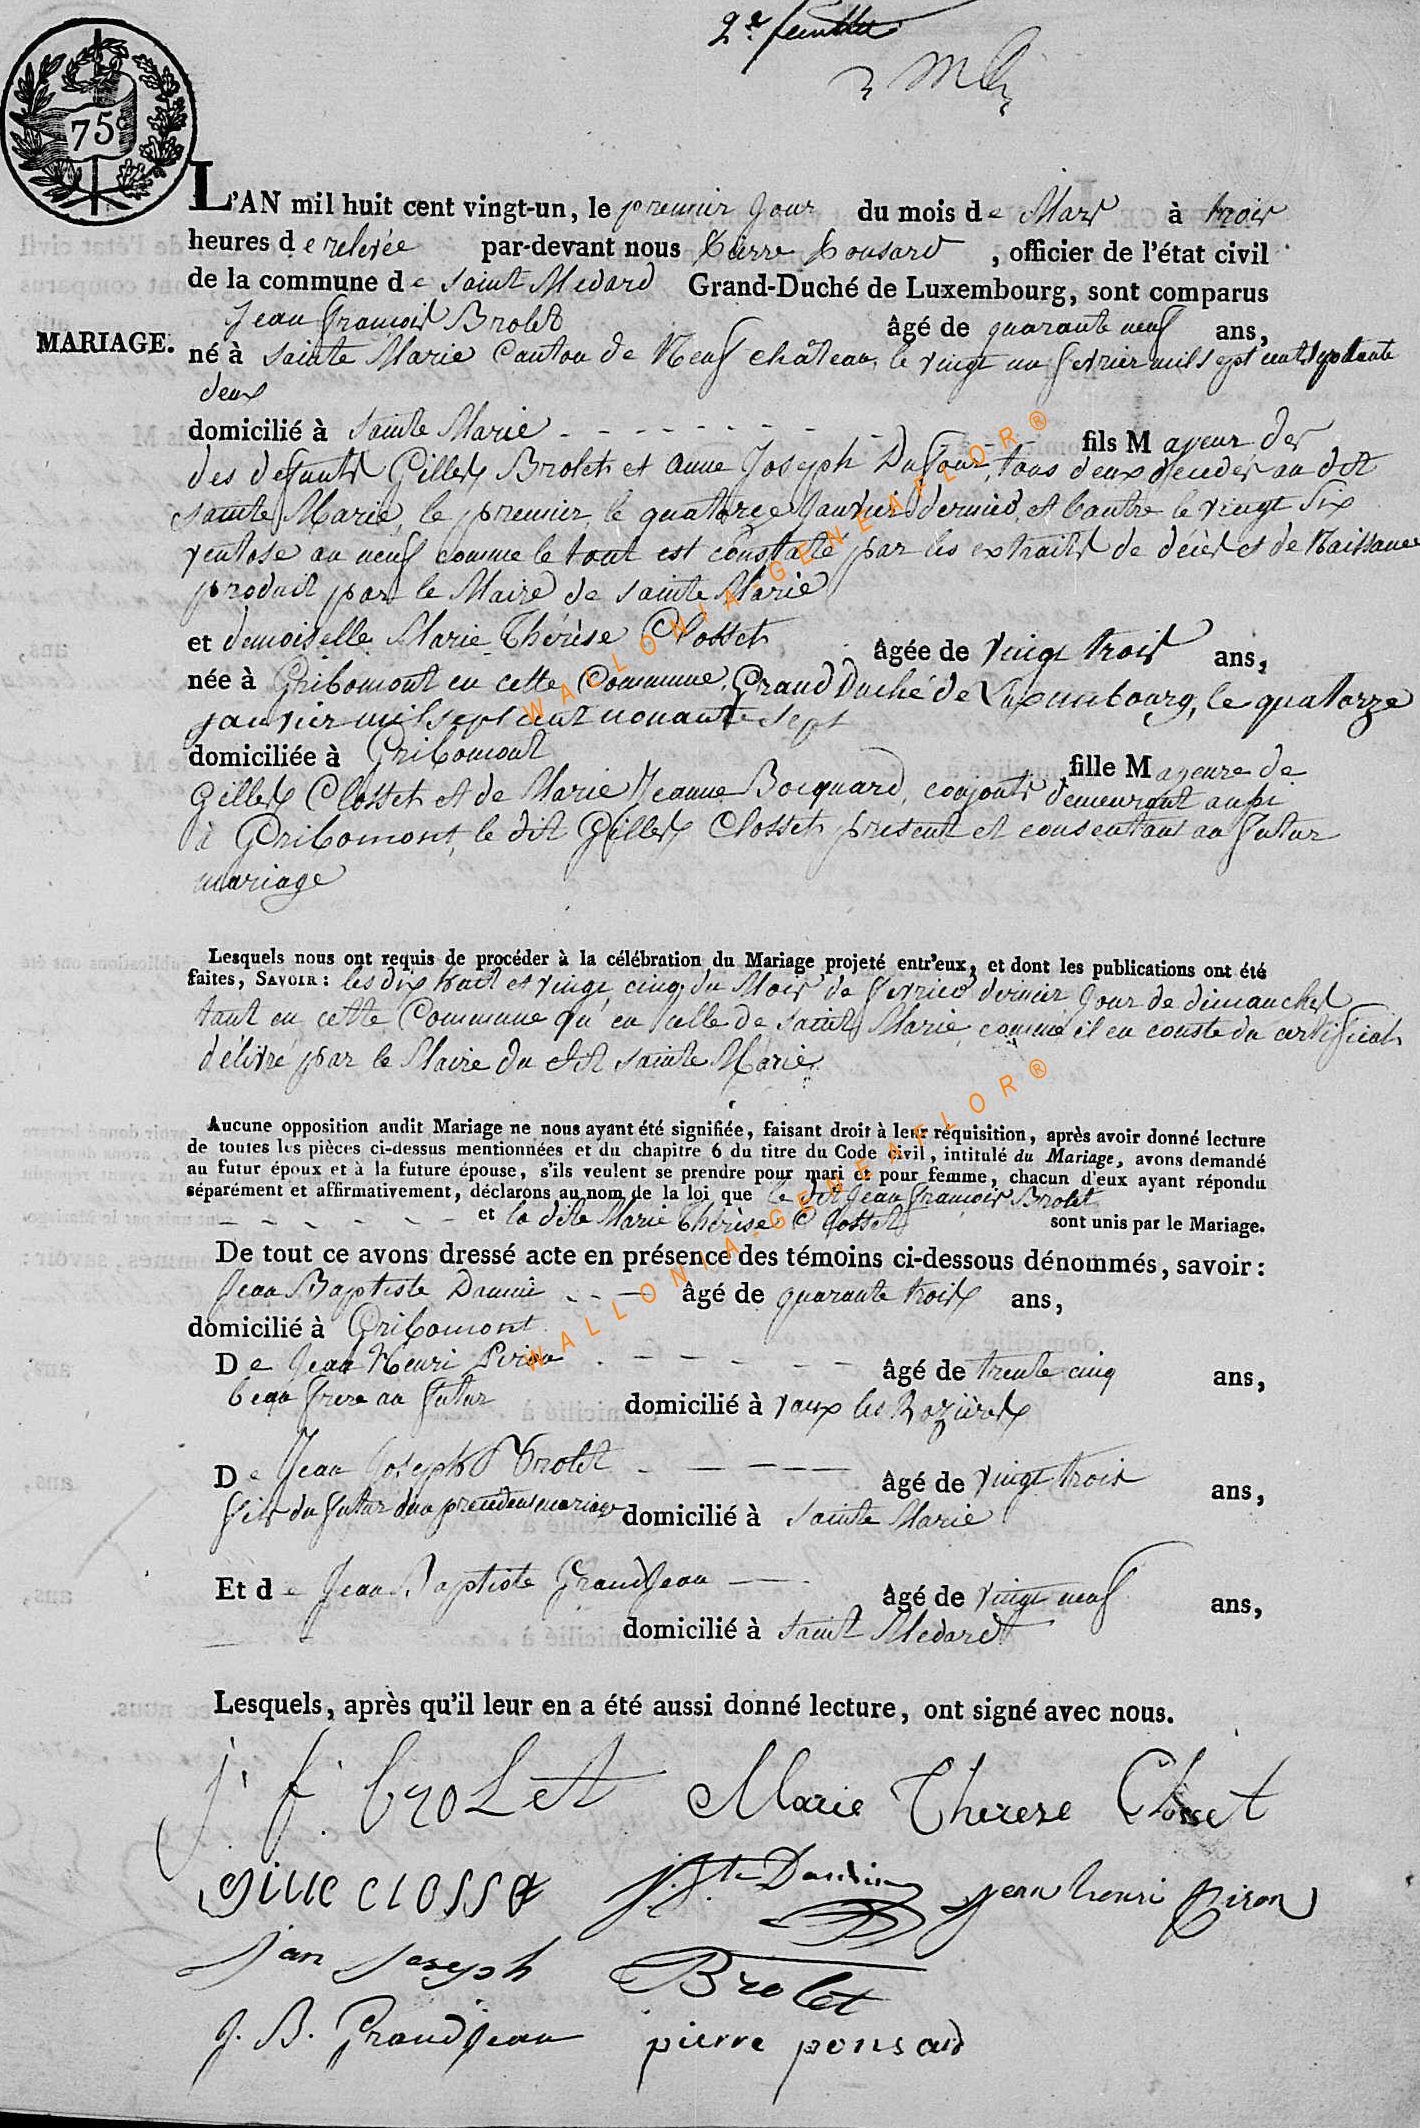 2e feuillet
75c
L'AN mil huit cent vingt-un, le premier jour du mois de Mars à trois
heures de relevée par-devant nous Pierre Ponsard, officier de l'état civil
de la commune de saint Medard Grand-Duché de Luxembourg, sont comparus
Jean françois Brolet âgé de quarante neuf ans,
MARIAGE.
né à sainte Marie Canton de Neuf château, le vingt un fevrier mil sept cent septante
deux
domicilié à sainte Marie - - - - - - - - fils Majeur des
des defunts Gilles Brolet et anne Joseph Dufour, tous deux decedés au dit
sainte Marie, le premier le quatorze Janvier dernier, et l'autre le vingt six
ventose an neuf comme le tout est constaté par les extraits de décès et de Naissance
produit par le Maire de sainte Marie
et demoiselle Marie Thérèse Closset âgée de vingt trois ans,
née à Gribomont en cette Commune, Grand Duché de Luxembourg, le quatorze
janvier mil sept cent nonante sept
domiciliée à Gribomont fille Majeure de
Gilles Closset et de Marie Jeanne Bocquard, conjoints demeurant aussi
à Gribomont, le dit Gilles Closset present et consentant au futur
mariage
Lesquels nous ont requis de procéder à la célébration du Mariage projeté entr'eux, et dont les publications ont été
faites, SAVOIR : les dix huit et vingt cinq du Mois de fevrier dernier Jour de dimanche
tant en cette Commune qu'en celle de sainte Marie comme il en conste du certificat
délivré par le Maire du dit sainte Marie
Aucune opposition audit Mariage ne nous ayant été signifiée, faisant droit à leur réquisition, après avoir donné lecture
de toutes les pièces ci-dessus mentionnées et du chapitre 6 du titre du Code Civil, intitulé du Mariage, avons demandé
au futur époux et à la future épouse, s'ils veulent se prendre pour mari et pour femme, chacun d'eux ayant répondu
séparément et affirmativement, déclarons au nom de la loi que le dit Jean françois Brolet
- - - - - - et la dite Marie Thérèse Closset sont unis par le Mariage.
De tout ce avons dressé acte en présence des témoins ci-dessous dénommés, savoir :
Jean Baptiste - - - âgé de quarante trois ans,
domicilié à Gribomont
De Jean Henri Piron - - - - - - âgé de trente cinq ans,
beau frere au futur domicilié à vaux les Rozières
De Jean Joseph Brolet - - - - âgé de vingt trois ans,
fils du futur d'un precedent mariage domicilié à sainte Marie
Et de Jean Baptiste Grandjean - - âgé de vingt neuf ans,
domicilié à saint Medard
Lesquels, après qu'il leur en a été aussi donné lecture, ont signé avec nous.
j. f. broLet Marie Therese Closset
gille closset jean henri Piron
jan joseph Brolet
J. B. Grandjean pierre ponsard
WALLONIA-GENEAFLOR®
WALLONIA-GENEAFLOR®